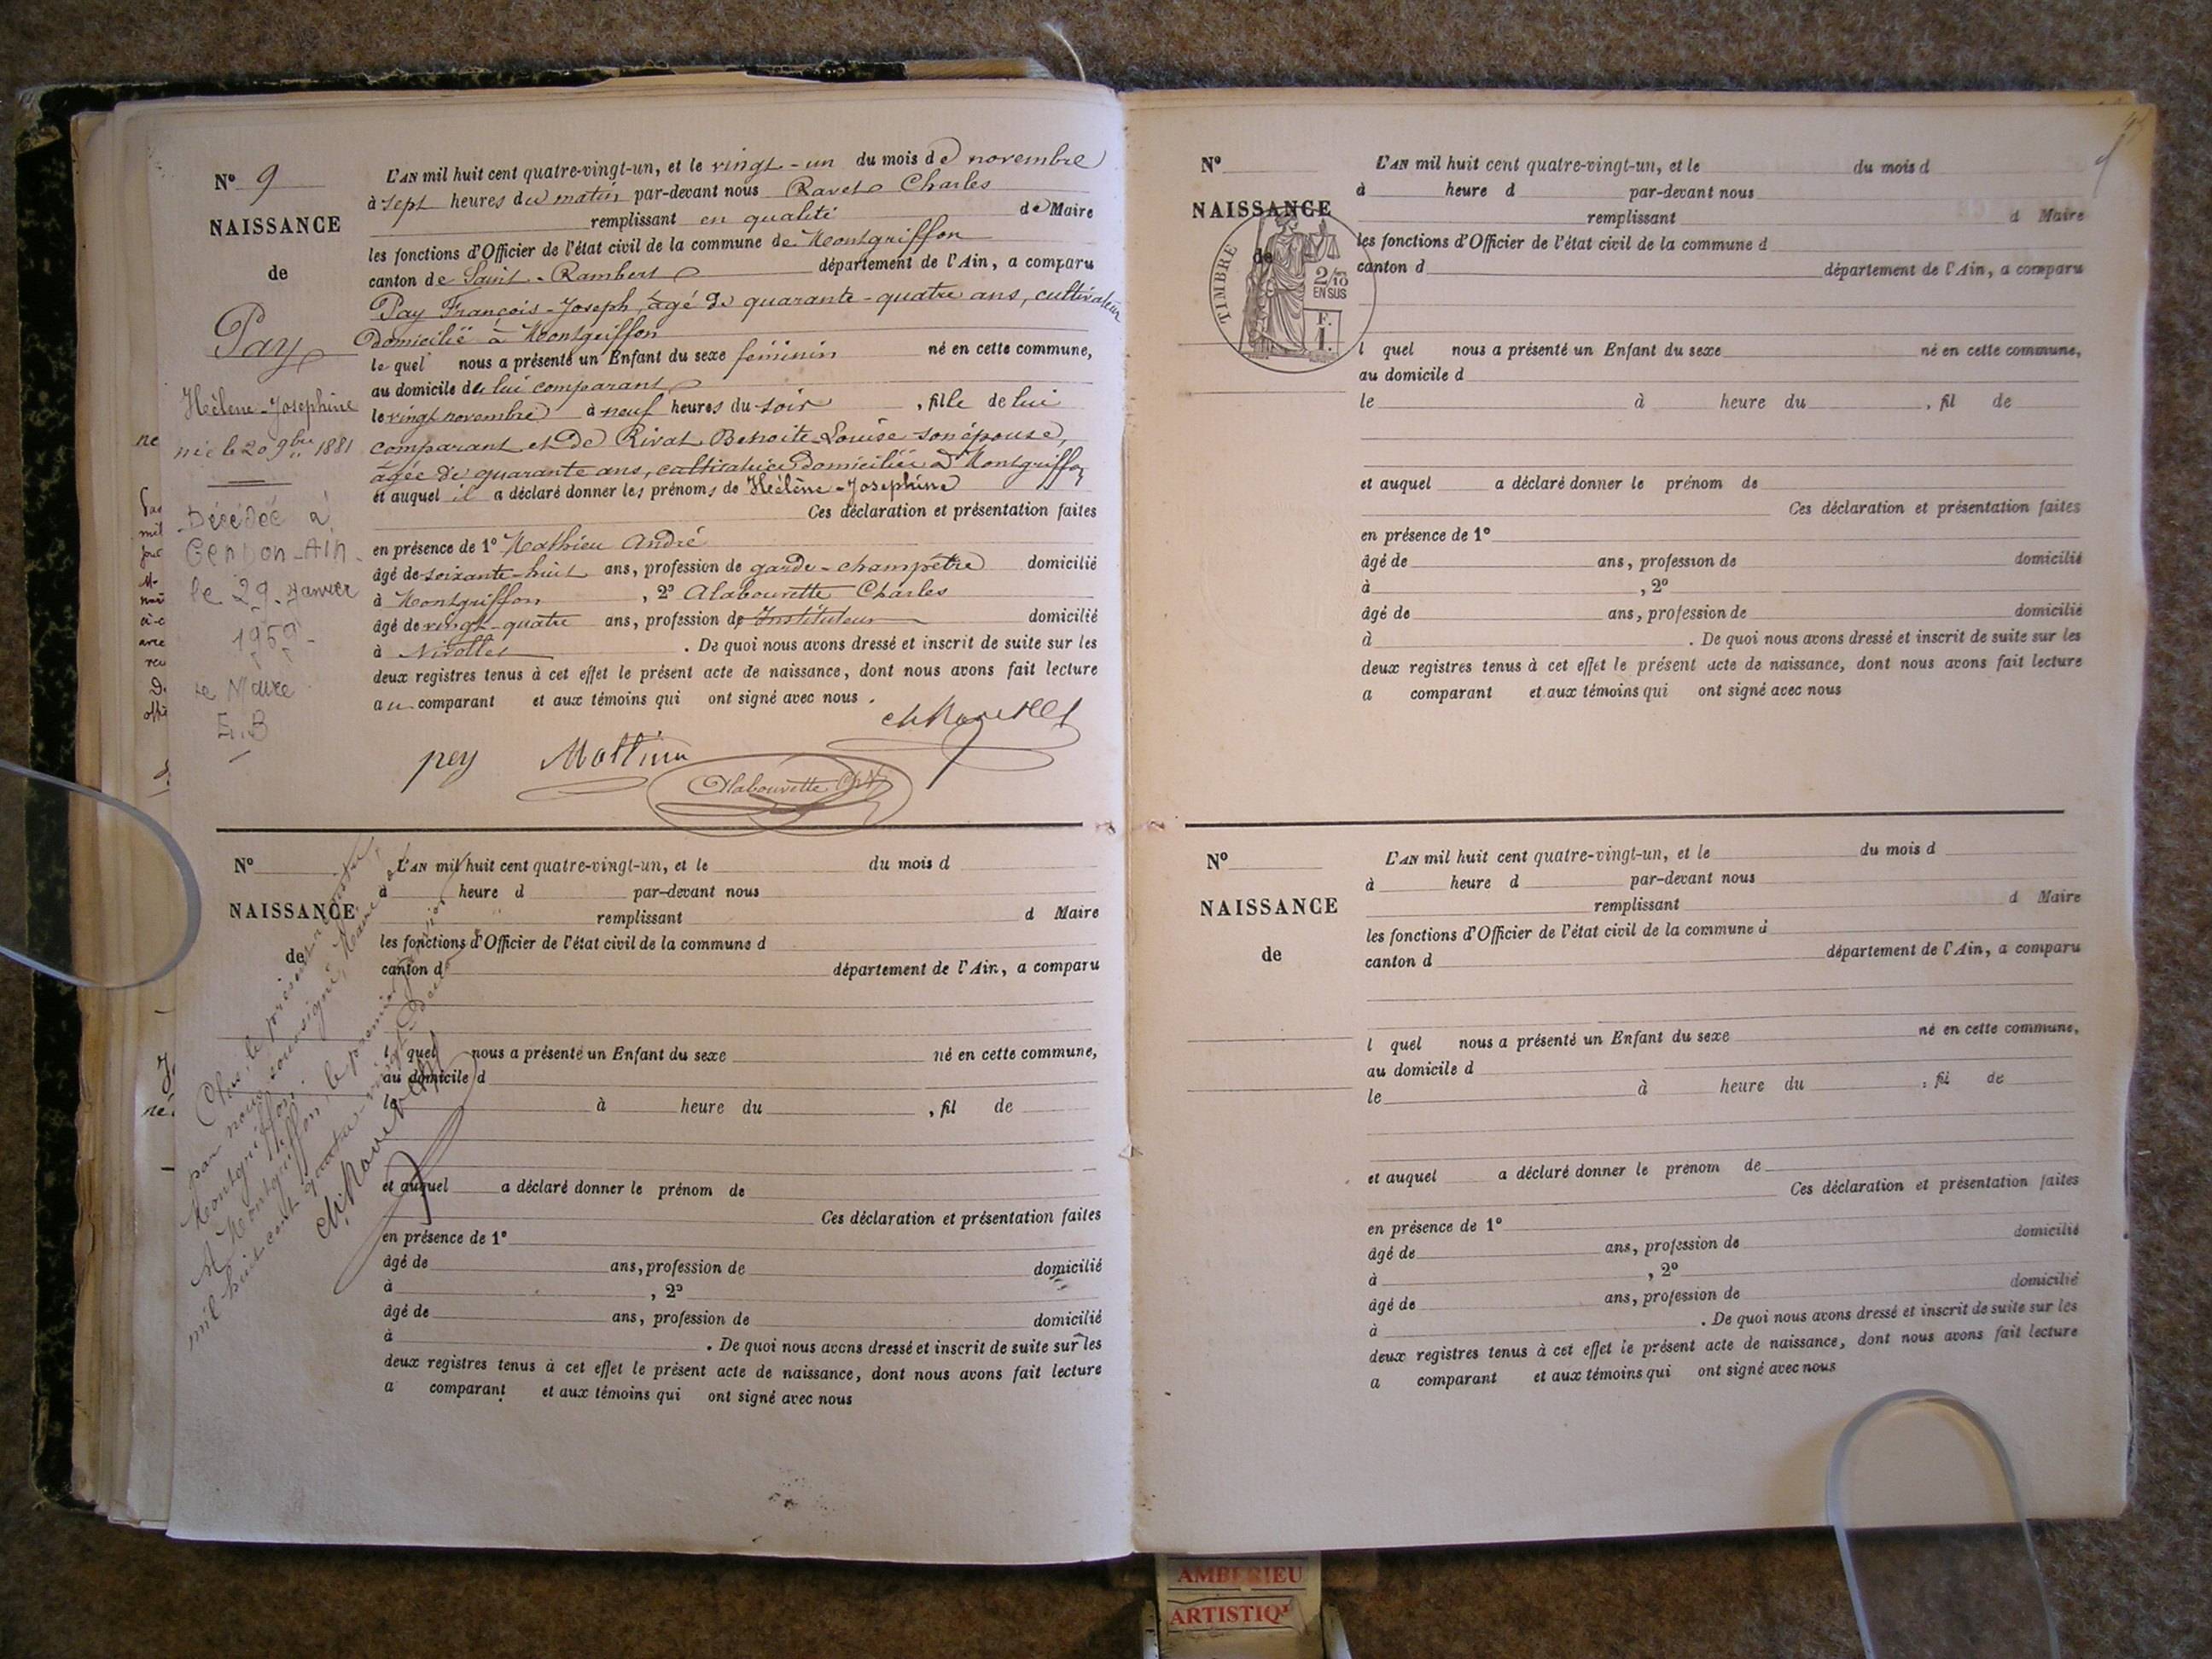 N° 9
NAISSANCE
de
Pay
Hélène-Joséphine
née le 20 9bre 1881
Décédée à
Cerdon-Ain
le 29 Janvier
1959
Le Maire
E.B
L'AN mil huit cent quatre-vingt-un, et le vingt-un du mois de novembre
à sept heures du matin par-devant nous Ravet Charles
remplissant en qualité de Maire
les fonctions d'Officier de l'état civil de la commune de Montgriffon
canton de Saint-Rambert département de l'Ain, a comparu
Pay François-Joseph, âgé de quarante-quatre ans, cultivateur
domicilié à Montgriffon
lequel nous a présenté un Enfant du sexe féminin né en cette commune,
au domicile de lui comparant
le vingt novembre à neuf heures du soir, fille de lui
comparant et de Rivat Benoite-Louise son épouse,
âgée de quarante ans, cultivatrice domiciliée à Montgriffon
et auquel il a déclaré donner les prénoms de Hélène-Joséphine
Ces déclaration et présentation faites
en présence de 1° Mathieu André
âgé de soixante-huit ans, profession de garde-champêtre domicilié
à Montgriffon, 2° Alabouvette Charles
âgé de vingt-quatre ans, profession de Instituteur domicilié
à Nivollet. De quoi nous avons dressé et inscrit de suite sur les
deux registres tenus à cet effet le présent acte de naissance, dont nous avons fait lecture
au comparant et aux témoins qui ont signé avec nous.
ch Ravet
pey Mathieu
Alabouvette Ch
N°
NAISSANCE
de
L'AN mil huit cent quatre-vingt-un, et le du mois d
à heure d par-devant nous
remplissant d Maire
les fonctions d'Officier de l'état civil de la commune d
canton d département de l'Ain, a comparu
l quel nous a présenté un Enfant du sexe né en cette commune,
au domicile d
le à heure du , fil de
et auquel a déclaré donner le prénom de
Ces déclaration et présentation faites
en présence de 1°
âgé de ans, profession de domicilié
à , 2°
âgé de ans, profession de domicilié
à . De quoi nous avons dressé et inscrit de suite sur les
deux registres tenus à cet effet le présent acte de naissance, dont nous avons fait lecture
a comparant et aux témoins qui ont signé avec nous
Clos, le présent registre,
par nous soussigné, Maire de
Montgriffon.
A Montgriffon, le premier janvier
mil huit cent quatre-vingt-deux
ch Ravet
N°
NAISSANCE
de
TIMBRE
2/10
EN SUS
F.
1.
L'AN mil huit cent quatre-vingt-un, et le du mois d
à heure d par-devant nous
remplissant d Maire
les fonctions d'Officier de l'état civil de la commune d
canton d département de l'Ain, a comparu
l quel nous a présenté un Enfant du sexe né en cette commune,
au domicile d
le à heure du , fil de
et auquel a déclaré donner le prénom de
Ces déclaration et présentation faites
en présence de 1°
âgé de ans, profession de domicilié
à , 2°
âgé de ans, profession de domicilié
à . De quoi nous avons dressé et inscrit de suite sur les
deux registres tenus à cet effet le présent acte de naissance, dont nous avons fait lecture
a comparant et aux témoins qui ont signé avec nous
N°
NAISSANCE
de
L'AN mil huit cent quatre-vingt-un, et le du mois d
à heure d par-devant nous
remplissant d Maire
les fonctions d'Officier de l'état civil de la commune d
canton d département de l'Ain, a comparu
l quel nous a présenté un Enfant du sexe né en cette commune,
au domicile d
le à heure du , fil de
et auquel a déclaré donner le prénom de
Ces déclaration et présentation faites
en présence de 1°
âgé de ans, profession de domicilié
à , 2°
âgé de ans, profession de domicilié
à . De quoi nous avons dressé et inscrit de suite sur les
deux registres tenus à cet effet le présent acte de naissance, dont nous avons fait lecture
a comparant et aux témoins qui ont signé avec nous
AMBERIEU
ARTISTIQ